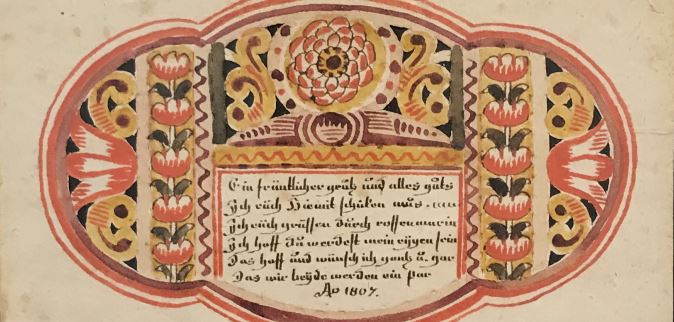 Ein fründtlicher gruß und alles guts
Ich eüch Hiemit schiken mus.
Ich eüch grüssen dürch rossenmarin
Ich hoff du werdest mein eijgen sein
Das hoff und wünsch ich gantz ü. gar
Das wir beÿde werden ein par
Ao 1807.